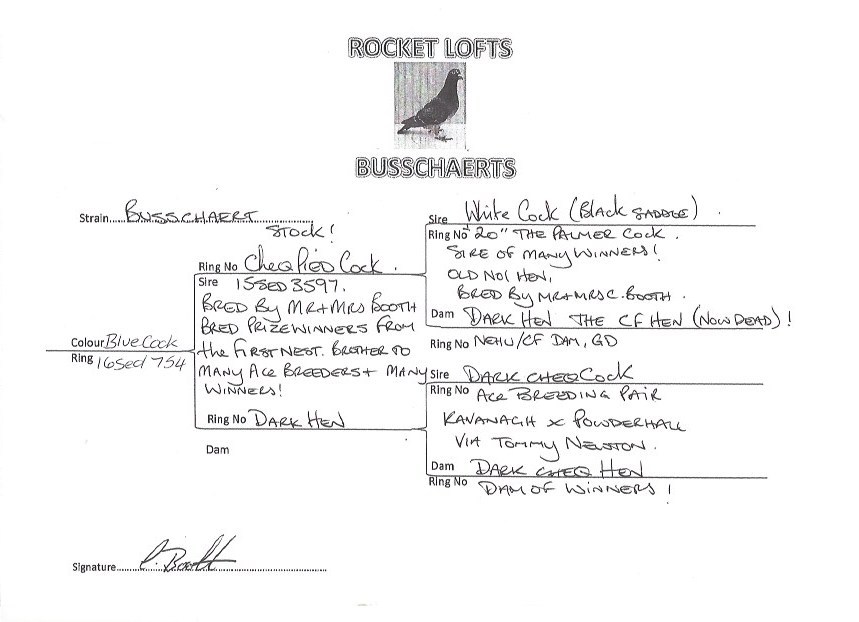 ROCKET LOFTS
BUSSCHAERTS
Strain.....BUSSCHAERT
STOCK!
Ring No Cheq Pied Cock.
Sire 15SED3597.
BRED BY MR+MRS BOOTH
BRED PRIZEWINNERS FROM
the FIRST NEST. BROTHER TO
MANY ACE BREEDERS+ MANY
WINNERS!
Colour Blue Cock
Ring 16Sed 754
Ring No DARK HEN
Dam
Sire White Cock (Black SADDLE)
Ring No "20" THE PALMER COCK.
SIRE OF MANY WINNERS!
OLD NO1 HEN,
BRED BY MR+MRS C. BOOTH.
Dam DARK HEN THE CF HEN (NOW DEAD)!
Ring No NEHU/CF DAM, GD
Sire DARK CHEQ COCK
Ring No ACE BREEDING PAIR
KAVANAGH x POWDERHALL
VIA TOMMY NEWTON.
Dam DARK CHEQ HEN
Ring No DAM OF WINNERS!
Signature.....C. Booth